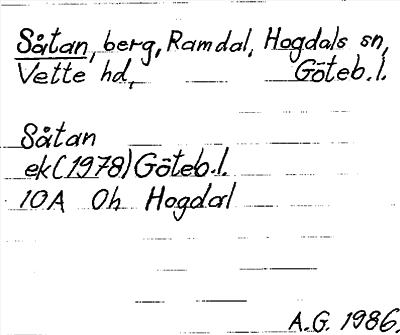 Såtan, berg, Ramdal, Hogdals sn,
Vette hd, Göteb.l.
Såtan
ek(1978) Göteb.l.
10A Oh Hogdal
A.G. 1986.